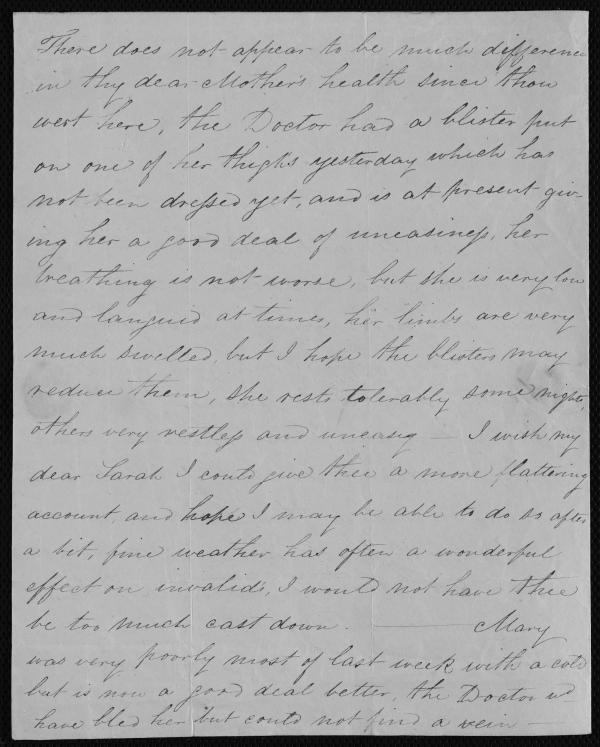 There does not appear to be much difference
in thy dear Mother's health since thou
wert here, the Doctor had a blister put
on one of her thighs yesterday which has
not been dressed yet, and is at present giv-
ing her a good deal of uneasiness, her
breathing is not worse, but she is very low
and languid at times, her limbs are very
much swelled, but I hope the blisters may
reduce them, she rests tolerably some nights,
others very restless and uneasy — I wish my
dear Sarah I could give thee a more flattering
account, and hope I may be able to do so after
a bit, fine weather has often a wonderful
effect on invalids, I would not have thee
be too much cast down. — Mary
was very poorly most of last week with a cold
but is now a good deal better, the Doctor wd
have bled her but could not find a vein —